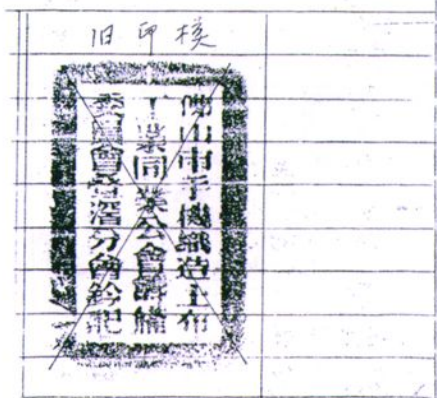 旧印模
佛山市手機織造土布
工業同業公會籌備
委員會疊滘分會鈐記